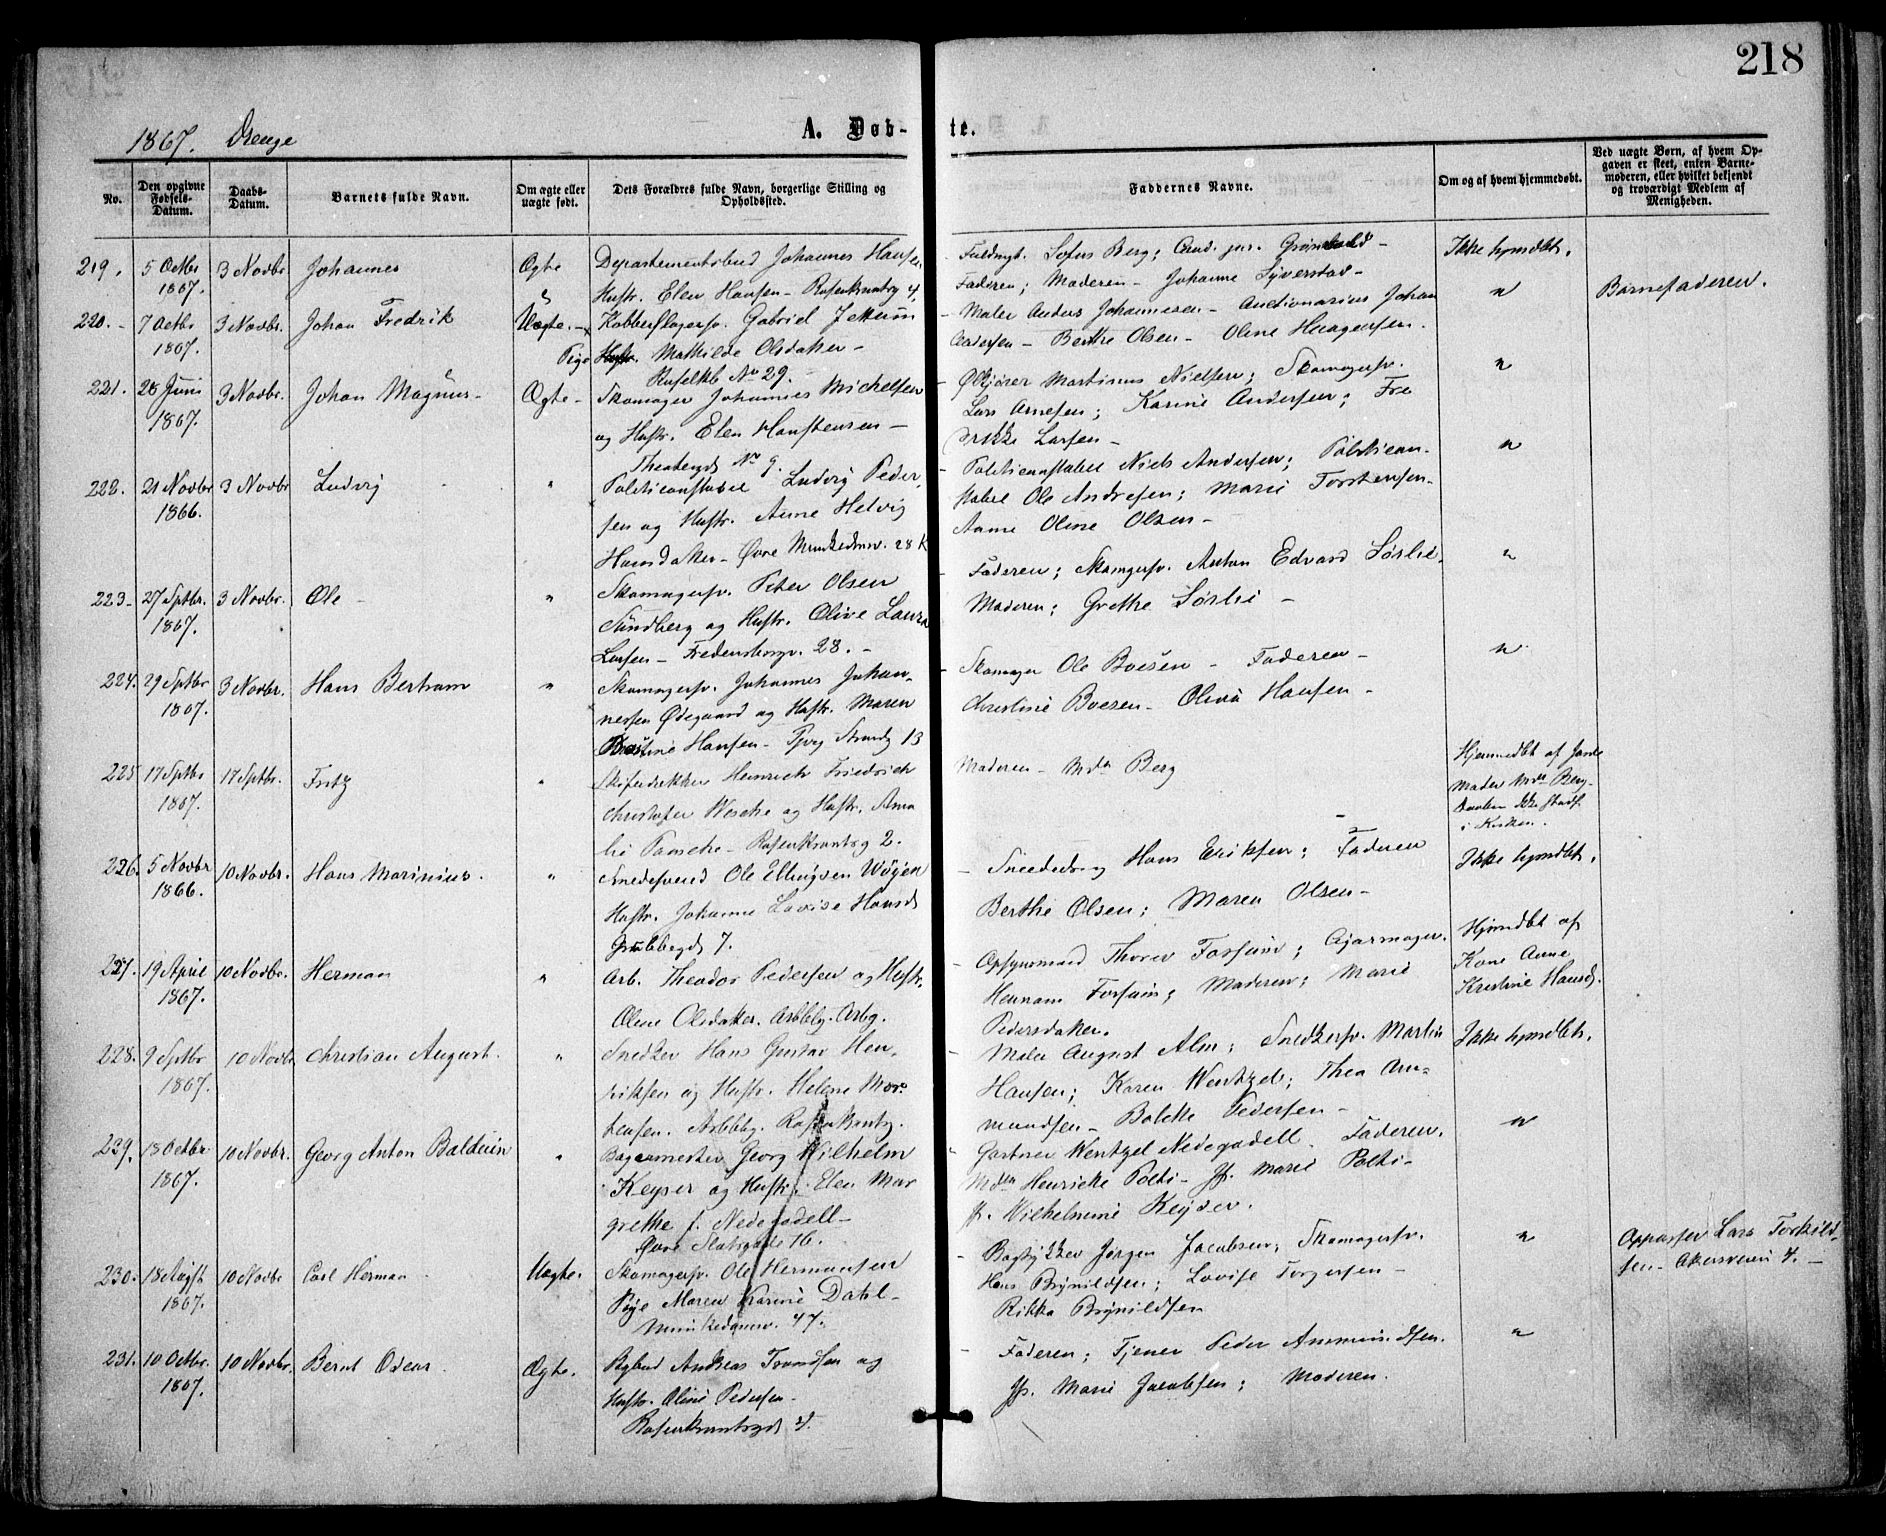 218
1867. Drenge
A. Døb-te.
No.
Den opgivne Fødsels-Datum.
Daabs-Datum.
Barnets fulde Navn.
Om ægte eller uægte født.
Dets Forældres fulde Navn, borgerlige Stilling og Opholdssted.
Faddernes Navne.
Om og af hvem hjemmedøbt.
Ved uægte Børn, af hvem Op-
gaven er skeet, enten Barne-
moderen, eller hvilket bekjendt
og troværdigt Medlem af
Menigheden.
219. 5 Octbr 3 Novbr Johannes Ægte Departementsbud Johannes Hansen Sofus Berg; Ikke hjmdøbt.
1867. Hustr. Elen Hansen - Rosenkrantzg 4. Faderen; Moderen - Johanne Syverstad - " Barnefaderen.
220. - 7 Octbr 3 Novbr. Johan Fredrik Uægte. - Kobberslagersv. Gabriel - Maler Anders Johannesen - Auctionarius Johan
1867. Pige Mathilde Olsdatter - Andersen - Berthe Olsen - Oline Haagensen.
No 29.
221. 28 Juni 3 Novbr. Johan Magnus - Ægte - Skomager Johannes Michelsen - Martinus Nielsen; Skomagersv. "
1867. og Hustr. Elen Hanstensen - Lars Arnesen; Karine Andersen; Fre
No 9. drikke Larsen -
222. 21 Novbr 3 Novbr Ludvig " Politiconstabel Ludvig Peder- - Politiconstabel Niels Andersen; Politicon- "
1866. sen og Hustr. Anne Helvig stabel Ole Andresen; Marie Torstensen -
Hansdatter - Øvre Munkedmsv. 28 K Anne Oline Olsen -
223. 27 Septbr. 3 Novbr. Ole - " Skomagersv. Peter Olsen - Faderen; Skomgersv. Anton Edvard Sørlie. "
1867. Sundberg og Hustr. Olive Laura Moderen; Grethe Sørlie -
Larsen - Fredensborgv. 28. -
224. 29 Septbr 3 Novbr. Hans Bertram " Skomagersv. Johannes Johan- - Skomager Ole Boesen - Faderen - "
1867. nessen Ødegaard og Hustr. Maren Christine Boesen - Olive Hansen -
Hansen - 13
225 17 Septbr 17 Septbr. Fritz " Skifertækker Heinrich Friedrich Moderen - Mdm Berg Hjemmedbt af Jorde
1867. Christofer Wesche og Hustr. Ama Moder Mdm Berg
lie Paasche - Rosenkrantzg 2. Daaben ikke stadf.
i Kirken.
226. 5 Novbr 10 Novbr. Hans Marinius. " Snedkersvend Ole Ellingsen Wøyen - Hans Eriksen; Faderen Ikke hjmdøbt.
1866. Hustr. Johanne Lovise Hansd Berthe Olsen; Maren Olsen -
Grubbegd 7.
227. 19 April 10 Novbr. Herman " Arb. Theodor Pedersen og Hustr. - Opsynsmand Thorer Forsum; Cigarmager. Hjmdbt af
1867. Olene Olsdatter. Arbblg. Arbg. Hermam Forsum; Moderen; Marie Kone Anne
Pedersdatter. Kristine Hansd.
228. 9 Septbr 10 Novbr Christian August. " Snedker Hans Gustav Hen- - Maler August Alm; Snedkersv. Martin Ikke hjmdbt.
1867. riksen og Hustr. Helene Mor- Hansen; Karen Wentzel; Thea Am-
tensen. Arbblg. Rosenkrantzg. mundsen - Bolette Pedersen -
229. 13 Octbr 10 Novbr. Georg Anton Balduin " Bagermester Georg Wilhelm - Gartner Wentzel Nedegadell. Faderen. "
1867. Keyser og Hustr. Elen Mar Mdm Henricke Polti - Jf. Marie Polti -
grethe f. Nedegadell - Jf. Wilhelmine Keyser.
Øvre Slotsgade 16.
230. 18 Augst 10 Novbr Carl Herman Uægte. Skomagersv. Ole Hermansen - Jørgen Jacobsen; Skomagersv. " Oppasser Lars Torkild-
1867. Pige Maren Karine Dahl - Hans Brynildsen; Lovise Torgersen - sen - Akersveien 4. -
Munkedamsv. 47. Rikka Brynildsen
231. 10 Octbr. 10 Novbr. Bernt Oscar Ægte. Bybud Andreas Trondsen og - Faderen; Tjener Peder Ammundsen. "
1867. Hustr. Oline Pedersen - Jf. Marie Jacobsen; Moderen.
Rosenkrantzgd 4.